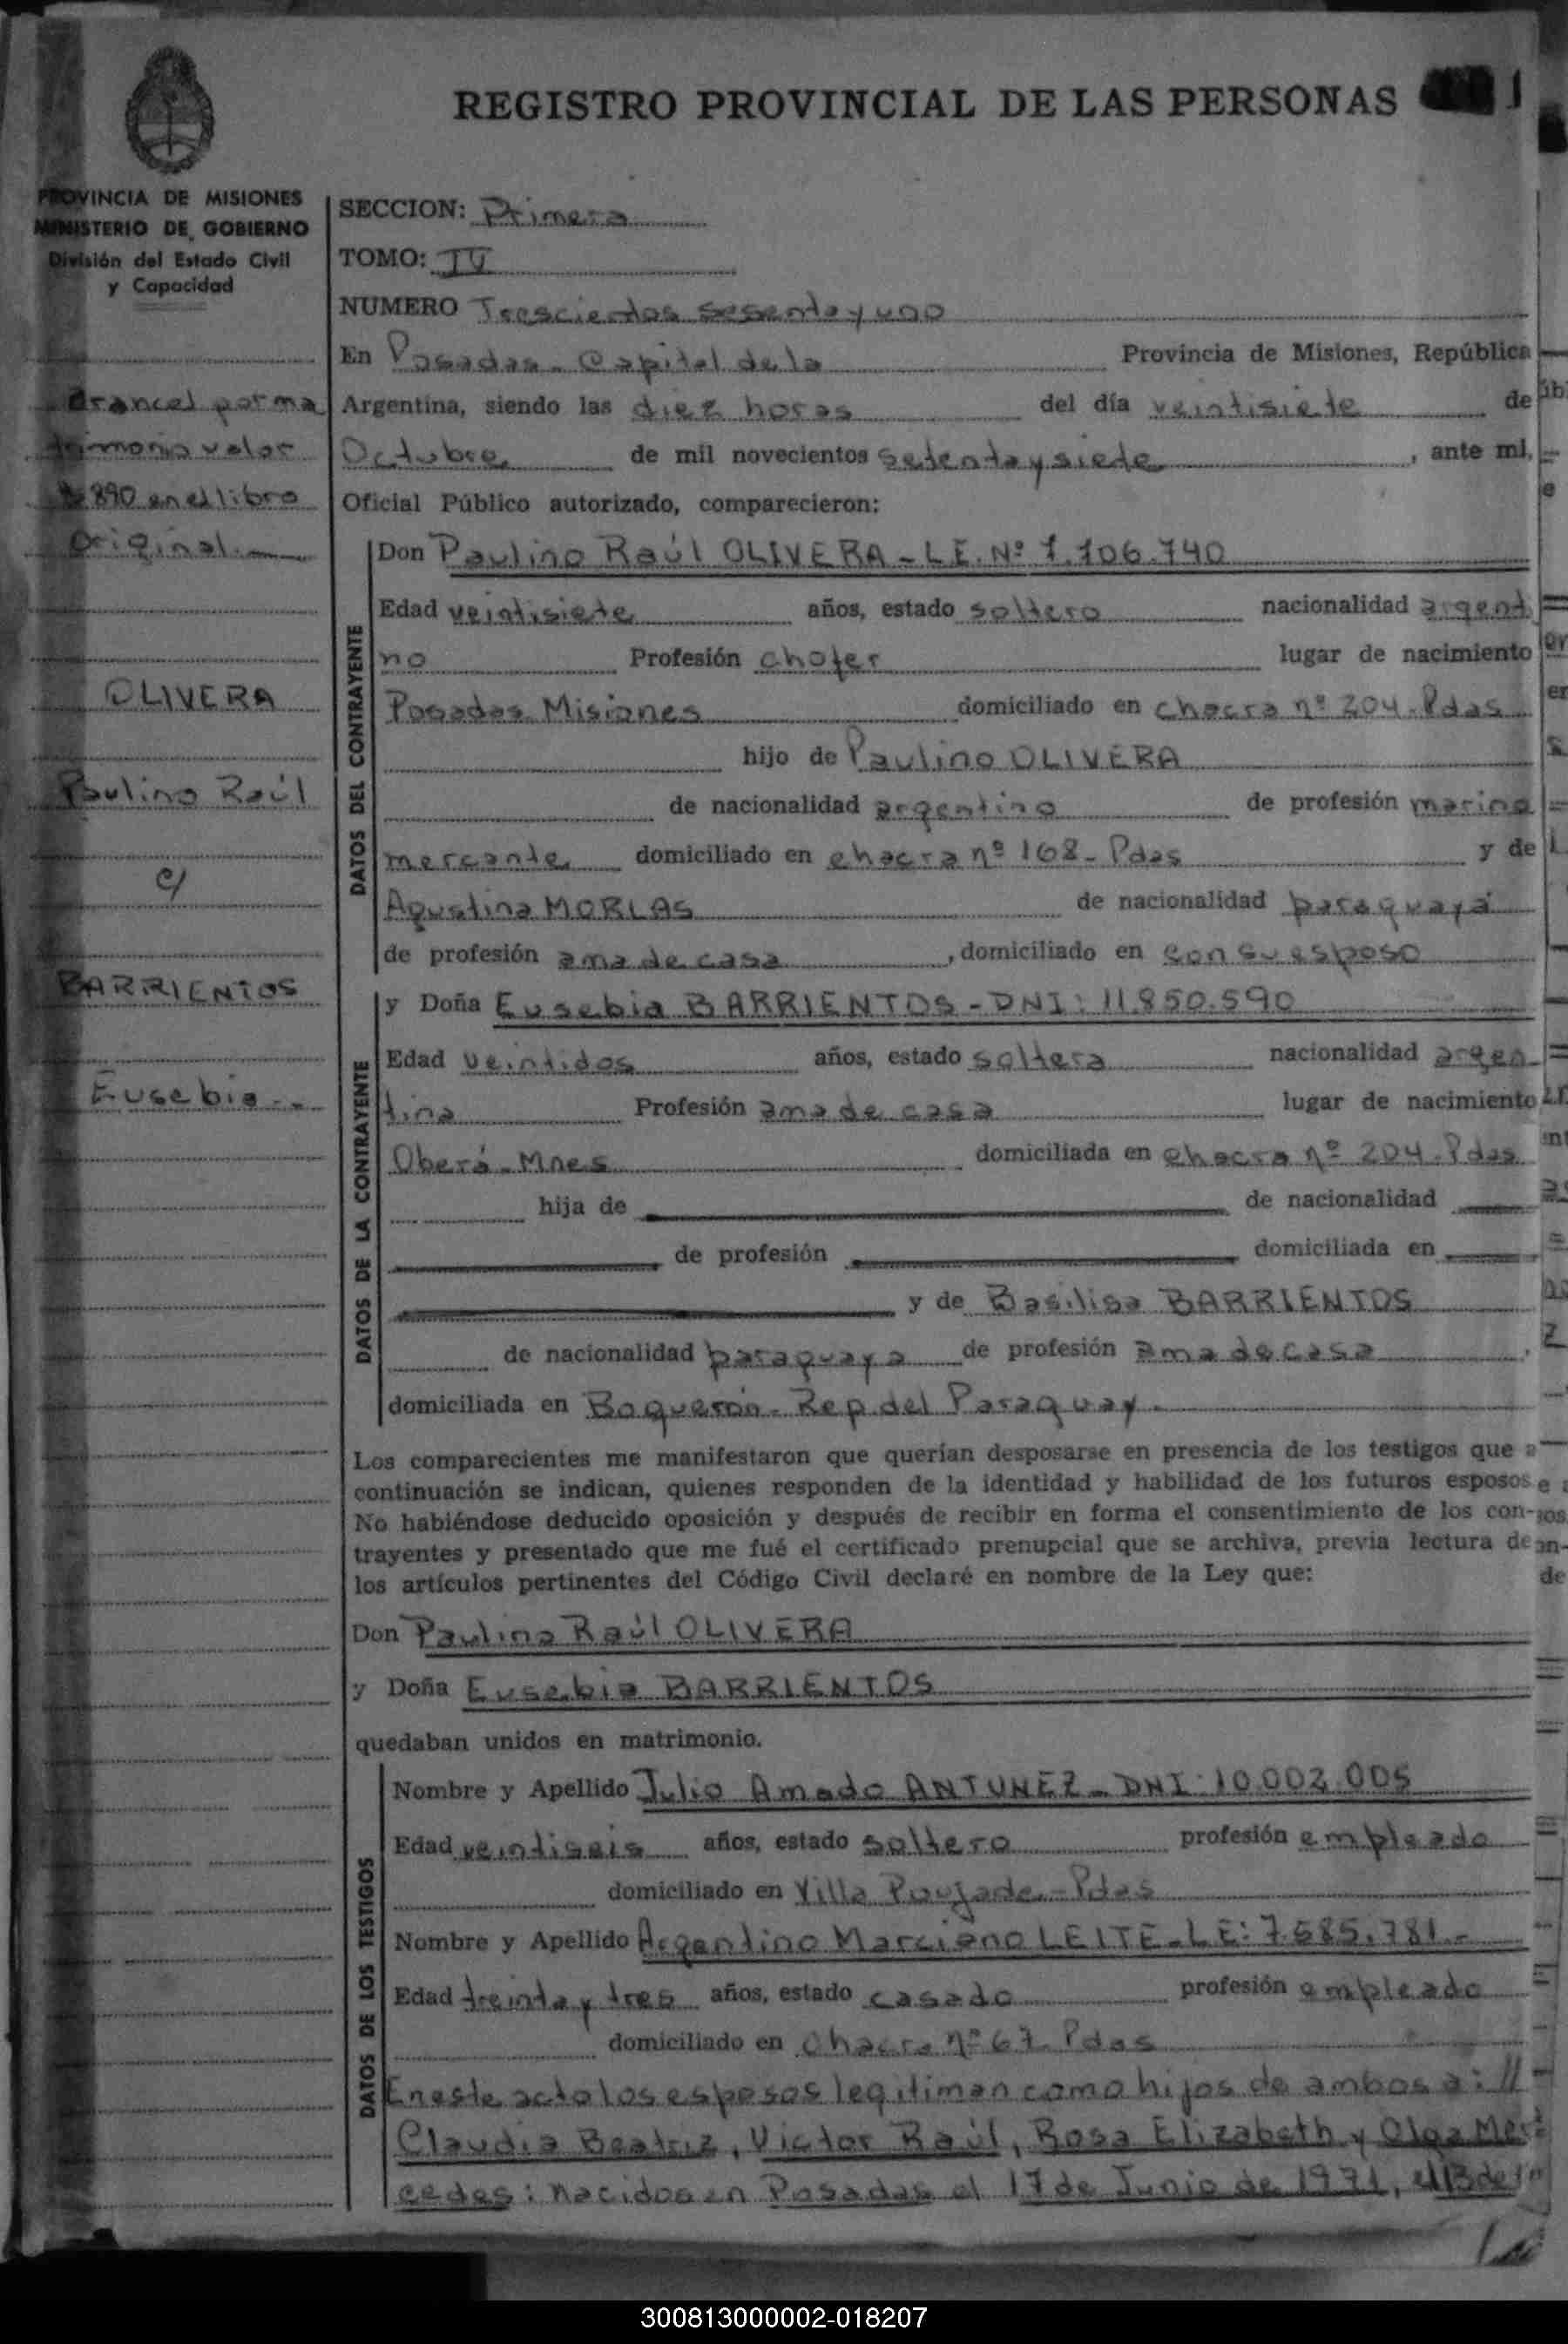 REGISTRO PROVINCIAL DE LAS PERSONAS
PROVINCIA DE MISIONES
MINISTERIO DE GOBIERNO
División del Estado Civil
y Capacidad
Arancel por ma
trimonio valor
$ 890 en el libro
Original.
OLIVERA
Paulino Raúl
c/
BARRIENTOS
Eusebia
SECCION: Primera
TOMO: IV
NUMERO Trescientos sesenta y uno
En Posadas - Capital de la Provincia de Misiones, República
Argentina, siendo las diez horas del día veintisiete de
Octubre de mil novecientos setenta y siete, ante mí,
Oficial Público autorizado, comparecieron:
DATOS DEL CONTRAYENTE
Don Paulino Raúl OLIVERA - L.E. Nº 7.106.740
Edad veintisiete años, estado soltero nacionalidad argenti
no Profesión chofer lugar de nacimiento
Posadas Misiones domiciliado en chacra nº 204 - Pdas
hijo de Paulino OLIVERA
de nacionalidad argentino de profesión marina
mercante domiciliado en chacra nº 168 - Pdas y de
Agustina MORLAS de nacionalidad paraguaya
de profesión ama de casa, domiciliado en con su esposo
DATOS DE LA CONTRAYENTE
y Doña Eusebia BARRIENTOS - DNI: 11.850.590
Edad veintidos años, estado soltera nacionalidad argen
tina Profesión ama de casa lugar de nacimiento
Oberá - Mnes domiciliada en chacra nº 204 - Pdas
hija de de nacionalidad
de profesión domiciliada en
y de Basilisa BARRIENTOS
de nacionalidad paraguaya de profesión ama de casa,
domiciliada en Boquerón - Rep. del Paraguay.
Los comparecientes me manifestaron que querían desposarse en presencia de los testigos que a
continuación se indican, quienes responden de la identidad y habilidad de los futuros esposos
No habiéndose deducido oposición y después de recibir en forma el consentimiento de los con-
trayentes y presentado que me fué el certificado prenupcial que se archiva, previa lectura de
los artículos pertinentes del Código Civil declaré en nombre de la Ley que:
Don Paulino Raúl OLIVERA
y Doña Eusebia BARRIENTOS
quedaban unidos en matrimonio.
DATOS DE LOS TESTIGOS
Nombre y Apellido Julio Amado ANTUNEZ - DNI: 10.002.005
Edad veintiseis años, estado soltero profesión empleado
domiciliado en Villa Poujade - Pdas
Nombre y Apellido Argentino Marciano LEITE - LE: 7.685.781.-
Edad treinta y tres años, estado casado profesión empleado
domiciliado en Chacra nº 67 - Pdas
En este acto los esposos legitiman como hijos de ambos a: //
Claudia Beatriz, Victor Raúl, Rosa Elizabeth y Olga Mer
cedes: nacidos en Posadas el 17 de Junio de 1971, el 13 de
300813000002-018207